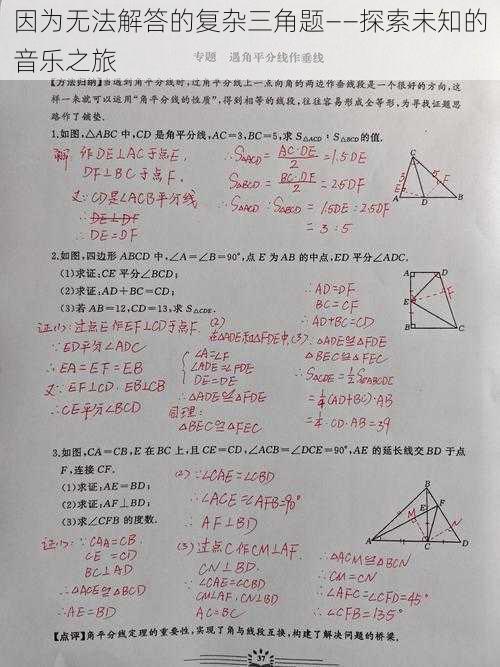 因为无法解答的复杂三角题——探索未知的
音乐之旅
专题 遇角平分线作垂线
【方法归纳】当遇到角平分线时,过角平分线上一点向角的两边作垂线段是一个很好的方向,这
样一来就可以运用“角平分线的性质”,得到相等的线段,往往容易形成全等形,为寻找证题思
路作了铺垫.
1.如图,△ABC 中,CD 是角平分线,AC=3,BC=5,求 S△ACD : S△BCD的值.
解 作DE⊥AC于点E,
DF⊥BC于点F.
又∵CD是∠ACB平分线
∴DE⊥DF
∴DE=DF
∴S△ACD = AC·DE/2 =1.5DE
S△BCD = BC·DF/2 =2.5DF
∴S△ACD : S△BCD = 1.5DE : 2.5DF
= 3 : 5
C
3
5
E
F
A
D
B
2.如图,四边形 ABCD 中,∠A=∠B=90°,点 E 为 AB 的中点,ED 平分∠ADC.
(1)求证:CE 平分∠BCD;
(2)求证:AD+BC=CD;
(3)若 AB=12,CD=13,求 S△CDE.
证(1):过点E作EF⊥CD于点F.
∵ED平分∠ADC
∴EA=EF=EB
又∵EF⊥CD. EB⊥CB
∴CE平分∠BCD
(2)
在△ADE和△FDE中,
∠A=∠F
∠ADE=∠FDE
DE=DE
∴△ADE≌△FDE
同理:
△BEC≌△FEC
∴AD=DF
BC=CF
∴AD+BC=CD
(3)∵△ADE≌△FDE
△BEC≌△FEC
∴S△CDE=1/2 S四ABCD
=1/4(AD+BC)·AB
=1/4 CD·AB=39
A
D
F
E
B
C
3.如图,CA=CB,E 在 BC 上,且 CE=CD,∠ACB=∠DCE=90°,AE 的延长线交 BD 于点
F,连接 CF.
(1)求证:AE=BD;
(2)求证:AF⊥BD;
(3)求∠CFB 的度数.
证(1):∵CA=CB.
CE=CD
BC⊥AD
∴△ACE≌△BCD
∴AE=BD
(2)∵∠CAE=∠CBD
∴∠ACE=∠AFB=90°
∴AF⊥BD
(3)过点C作CM⊥AF.
CN⊥BD.
∵∠CAE=∠CBD
CM⊥AF, CN⊥BD
AC=BC
∴△ACM≌△BCN
∴CM=CN
∴∠AFC=∠CFD=45°
∴∠CFB=135°
B
F
M
E
N
A
C
D
【点评】角平分线定理的重要性,实现了角与线段互换,构建了解决问题的桥梁.
37